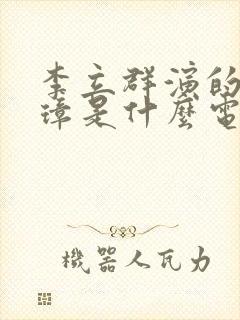 李立群演的
璋是什麼電
機器人瓦力